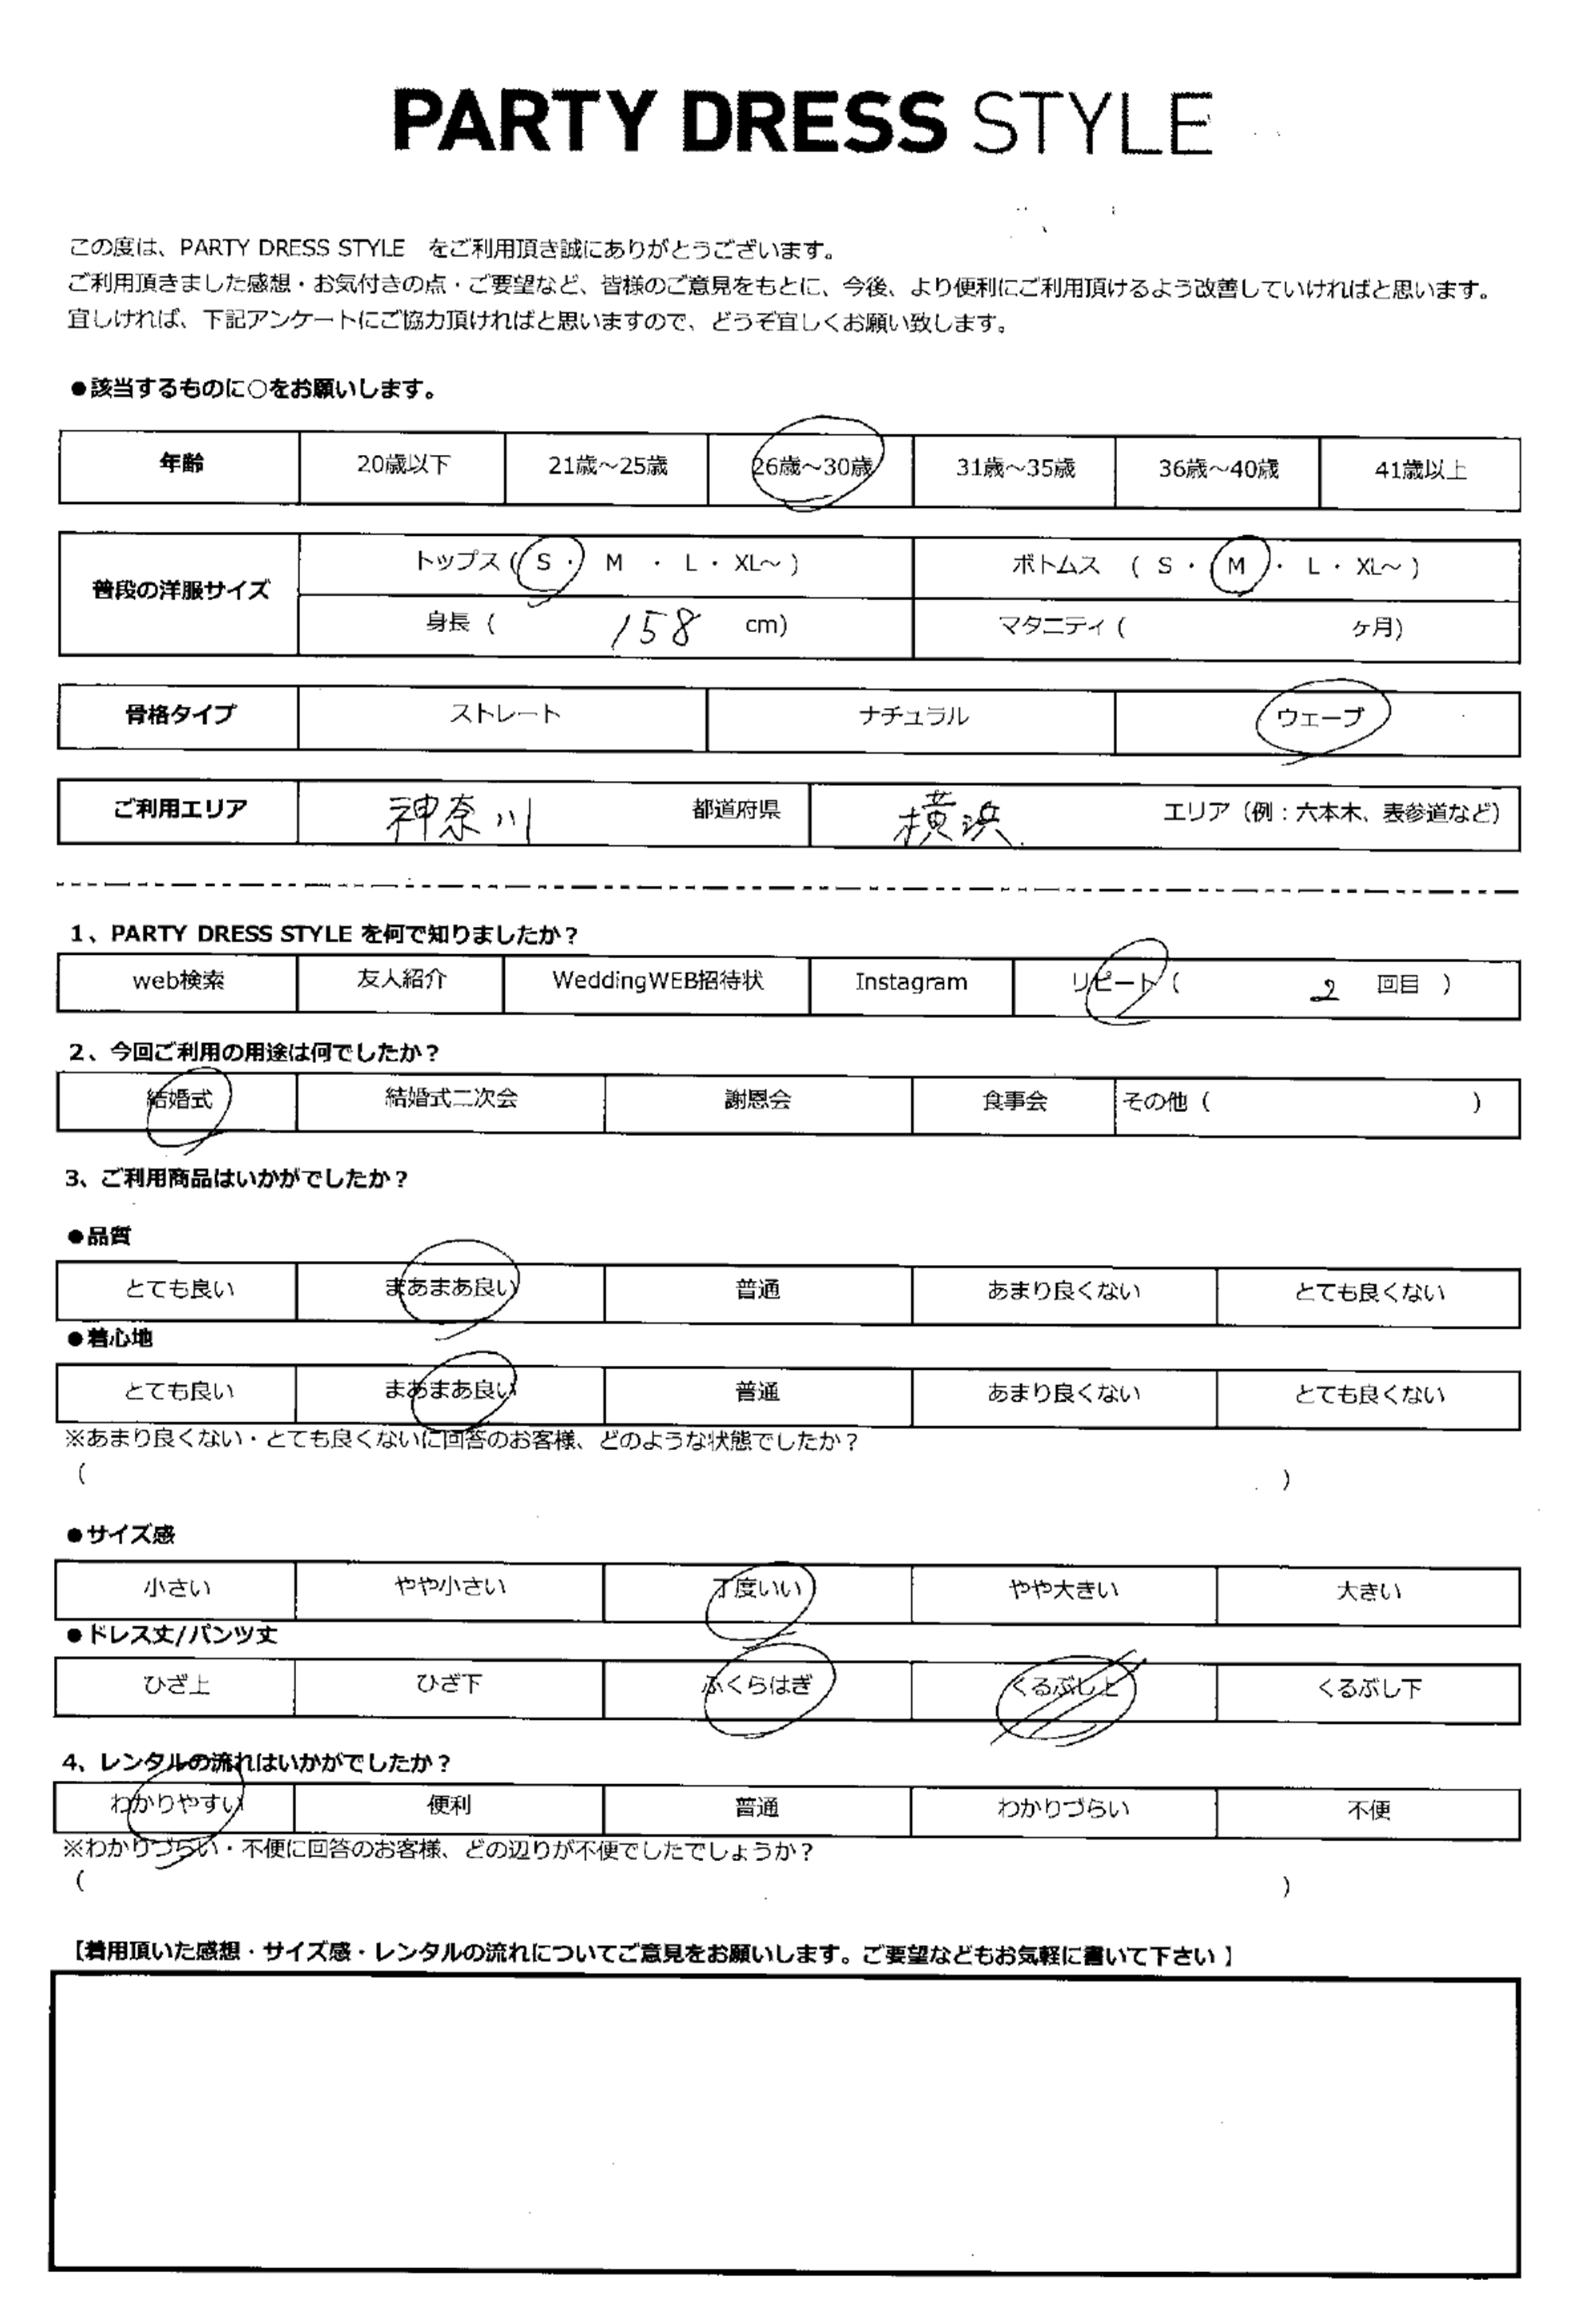 PARTY DRESS STYLE
この度は、PARTY DRESS STYLE　をご利用頂き誠にありがとうございます。
ご利用頂きました感想・お気付きの点・ご要望など、皆様のご意見をもとに、今後、より便利にご利用頂けるよう改善していければと思います。
宜しければ、下記アンケートにご協力頂ければと思いますので、どうぞ宜しくお願い致します。
●該当するものに○をお願いします。
年齢 20歳以下 21歳～25歳 26歳～30歳 31歳～35歳 36歳～40歳 41歳以上
普段の洋服サイズ トップス ( S ・ M ・ L ・ XL～ ) ボトムス ( S ・ M ・ L ・ XL～ )
身長 ( 158 cm) マタニティ ( ヶ月)
骨格タイプ ストレート ナチュラル ウェーブ
ご利用エリア 神奈川 都道府県 横浜 エリア（例：六本木、表参道など）
1、PARTY DRESS STYLE を何で知りましたか？
web検索 友人紹介 WeddingWEB招待状 Instagram リピート ( 2 回目 )
2、今回ご利用の用途は何でしたか？
結婚式 結婚式二次会 謝恩会 食事会 その他 ( )
3、ご利用商品はいかがでしたか？
●品質
とても良い まあまあ良い 普通 あまり良くない とても良くない
●着心地
とても良い まあまあ良い 普通 あまり良くない とても良くない
※あまり良くない・とても良くないに回答のお客様、どのような状態でしたか？
( )
●サイズ感
小さい やや小さい 丁度いい やや大きい 大きい
●ドレス丈/パンツ丈
ひざ上 ひざ下 ふくらはぎ くるぶし上 くるぶし下
4、レンタルの流れはいかがでしたか？
わかりやすい 便利 普通 わかりづらい 不便
※わかりづらい・不便に回答のお客様、どの辺りが不便でしたでしょうか？
( )
【着用頂いた感想・サイズ感・レンタルの流れについてご意見をお願いします。ご要望などもお気軽に書いて下さい】